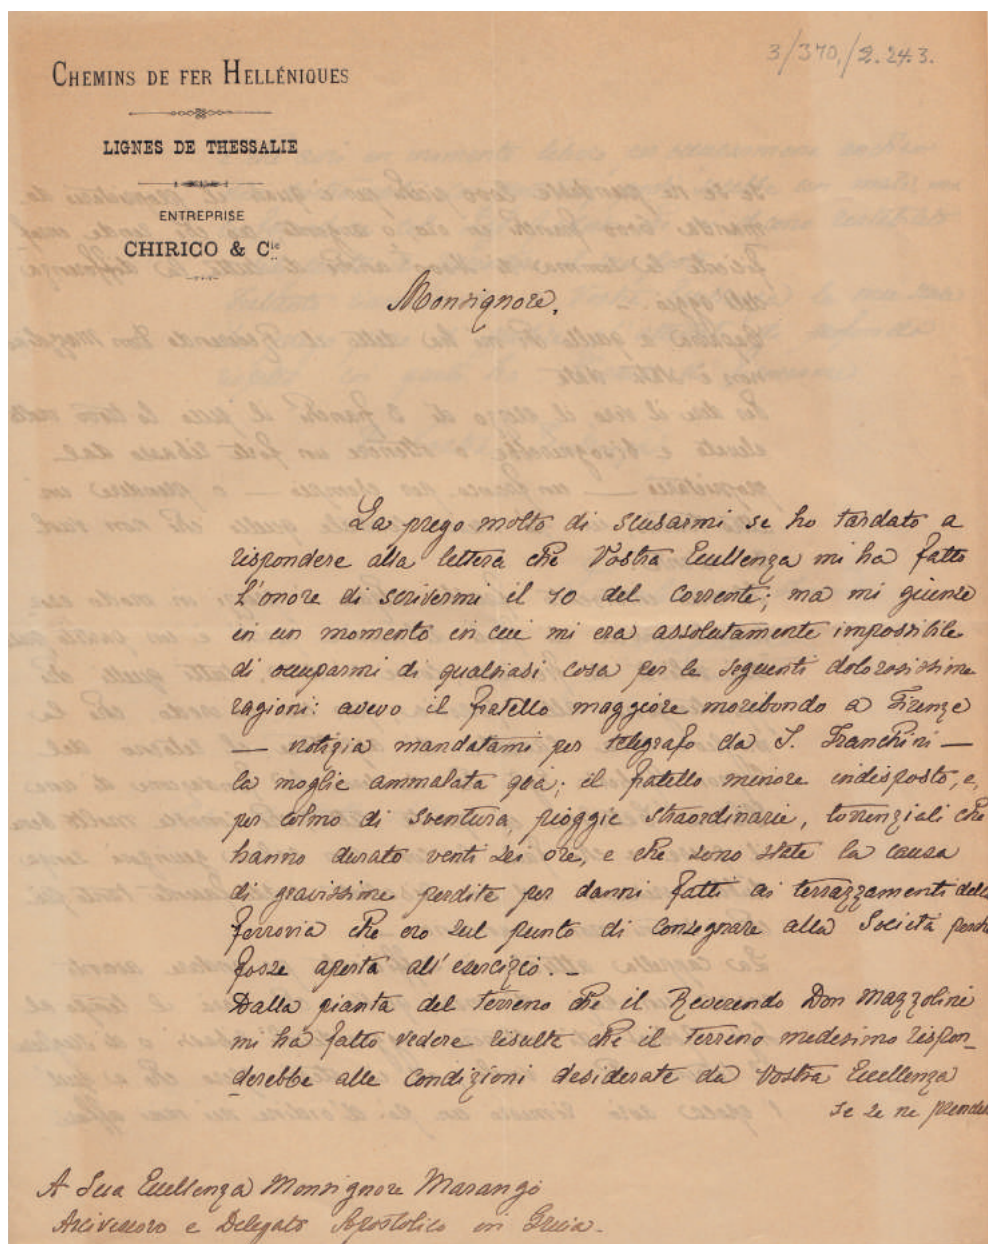 3/370/2.243.
CHEMINS DE FER HELLÉNIQUES
LIGNES DE THESSALIE
ENTREPRISE
CHIRICO & Cie
Monsignore,
La prego molto di scusarmi se ho tardato a
rispondere alla lettera che Vostra Eccellenza mi ha fatto
l'onore di scrivermi il 10 del corrente; ma mi giunse
in un momento in cui mi era assolutamente impossibile
di occuparmi di qualsiasi cosa per le seguenti dolorosissime
ragioni: avevo il fratello maggiore moribondo a Firenze
— notizia mandatami per telegrafo da S. Franchini —
la moglie ammalata quà; il fratello minore indisposto, e,
per colmo di sventura, pioggie straordinarie, torrenziali che
hanno durato venti sei ore, e che sono state la causa
di gravissime perdite per danni fatti ai terrazzamenti della
ferrovia che ero sul punto di consegnare alla Società perchè
fosse aperta all'esercizio. —
Dalla pianta del terreno che il Reverendo Don Mazzolini
mi ha fatto vedere risulta che il terreno medesimo rispon-
derebbe alle condizioni desiderate da Vostra Eccellenza
se se ne
A Sua Eccellenza Monsignore Marango
Arcivescovo e Delegato Apostolico in Grecia.